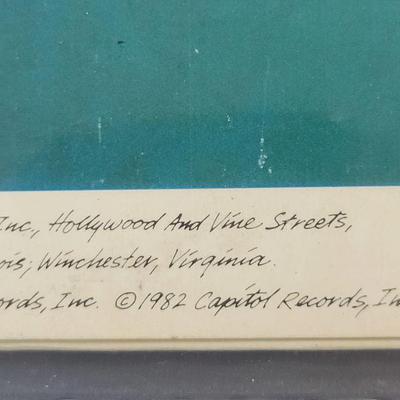 Inc., Hollywood And Vine Streets,
ois; Winchester, Virginia.
ords, Inc. ©1982 Capitol Records, In